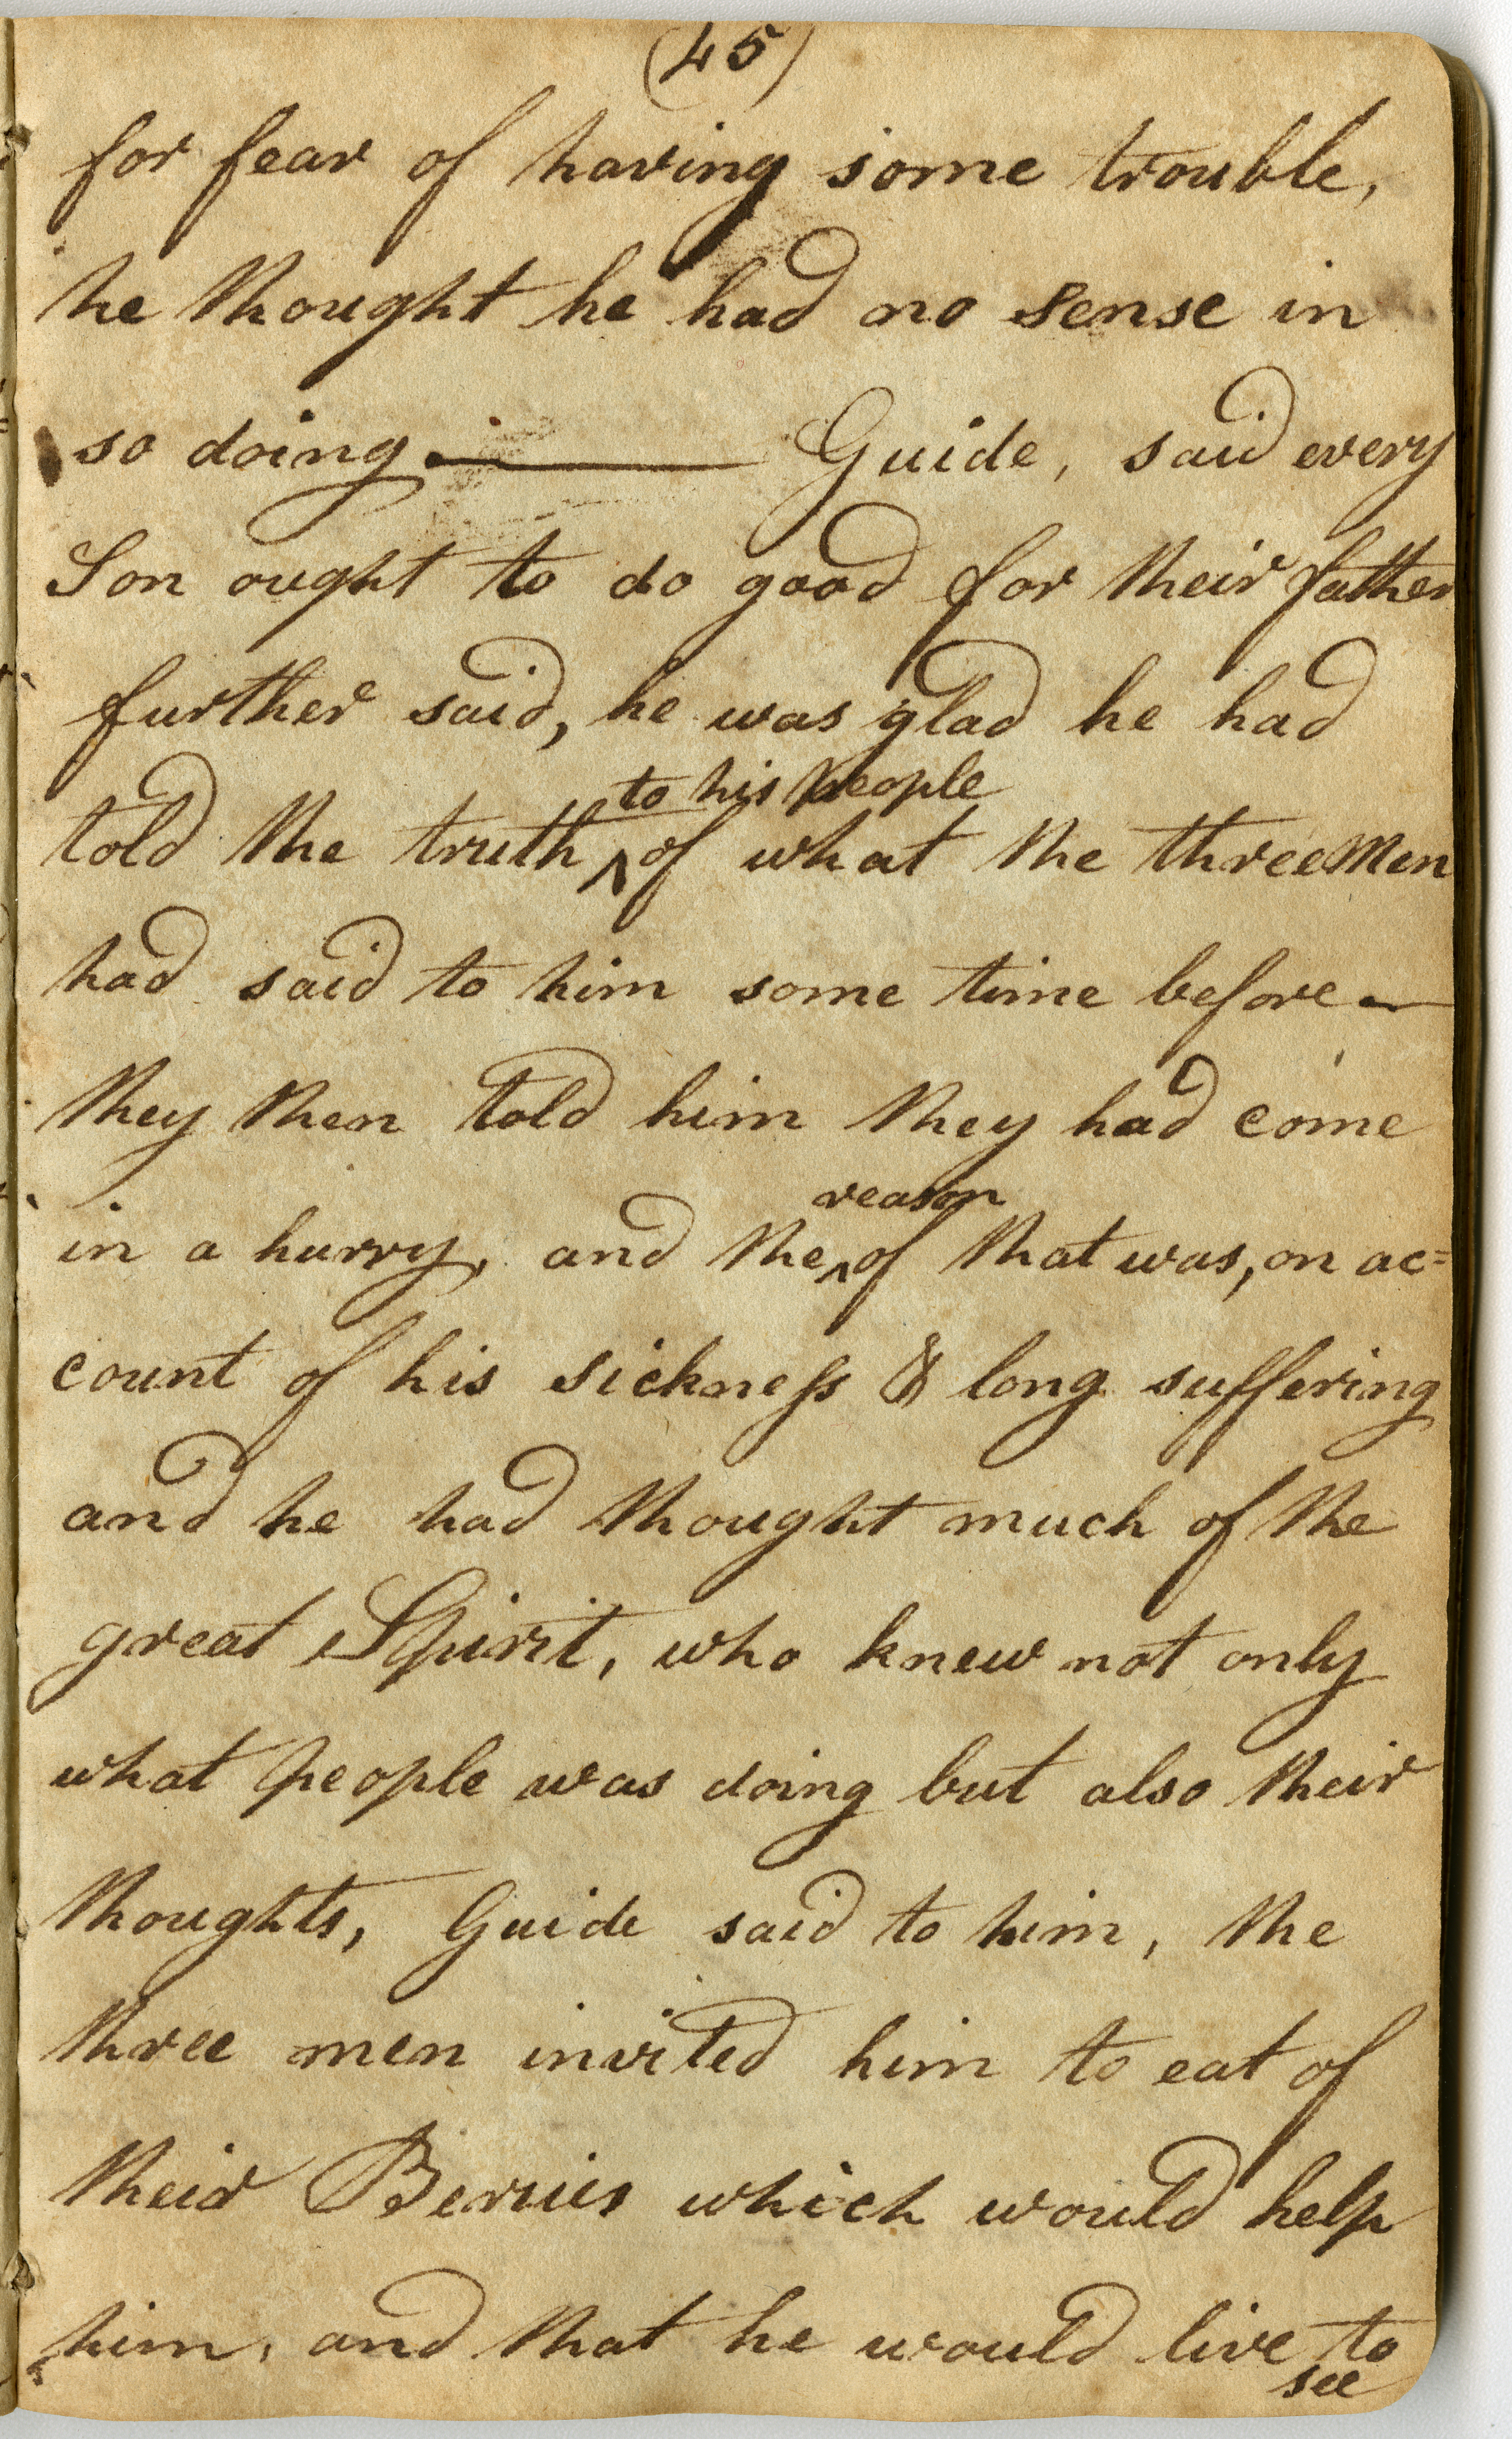 (45)
for fear of having some trouble,
he thought he had no sense in
so doing.— Guide, said every
Son ought to do good for their father
further said, he was glad he had
to his people
told the truth ^ of what the three Men
had said to him some time before—
they then told him they had come
reason
in a hurry, and the ^ of that was, on ac=
count of his sickneſs & long suffering
and he had thought much of the
great Spirit, who knew not only
what people was doing but also their
thoughts, Guide said to him, the
three men invited him to eat of
their Berries which would help
him, and that he would live to
see